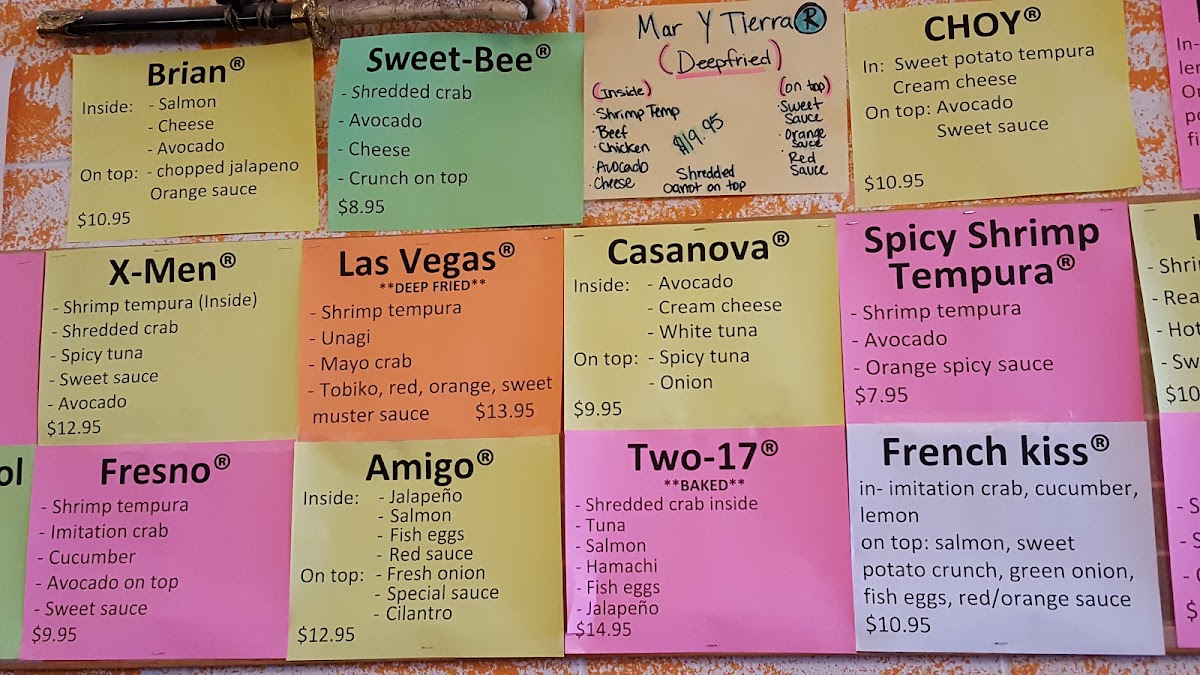 Brian®
Inside: - Salmon
- Cheese
- Avocado
On top: - chopped jalapeno
Orange sauce
$10.95
Sweet-Bee®
- Shredded crab
- Avocado
- Cheese
- Crunch on top
$8.95
Mar Y Tierra®
(Deepfried)
(Inside)
· Shrimp Temp
· Beef
· Chicken
· Avocado
· Cheese
$19.95
Shredded
on top
(on top)
· Sweet
Sauce
· Orange
Sauce
· Red
Sauce
CHOY®
In: Sweet potato tempura
Cream cheese
On top: Avocado
Sweet sauce
$10.95
In-
X-Men®
- Shrimp tempura (Inside)
- Shredded crab
- Spicy tuna
- Sweet sauce
- Avocado
$12.95
Las Vegas®
**DEEP FRIED**
- Shrimp tempura
- Unagi
- Mayo crab
- Tobiko, red, orange, sweet
muster sauce $13.95
Casanova®
Inside: - Avocado
- Cream cheese
- White tuna
On top: - Spicy tuna
- Onion
$9.95
Spicy Shrimp
Tempura®
- Shrimp tempura
- Avocado
- Orange spicy sauce
$7.95
- Shri
- Rea
- Hot
- Sw
$10
ol
Fresno®
- Shrimp tempura
- Imitation crab
- Cucumber
- Avocado on top
- Sweet sauce
$9.95
Amigo®
Inside: - Jalapeño
- Salmon
- Fish eggs
- Red sauce
On top: - Fresh onion
- Special sauce
- Cilantro
$12.95
Two-17®
**BAKED**
- Shredded crab inside
- Tuna
- Salmon
- Hamachi
- Fish eggs
- Jalapeño
$14.95
French kiss®
in- imitation crab, cucumber,
lemon
on top: salmon, sweet
potato crunch, green onion,
fish eggs, red/orange sauce
$10.95
- S
- S
$